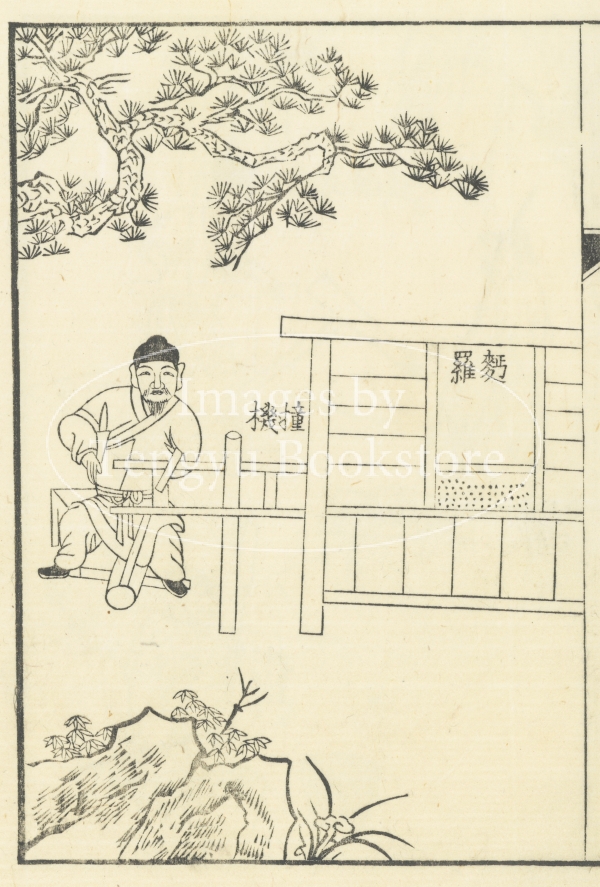 麪羅
撞機
Images by
Tengyu Bookstore